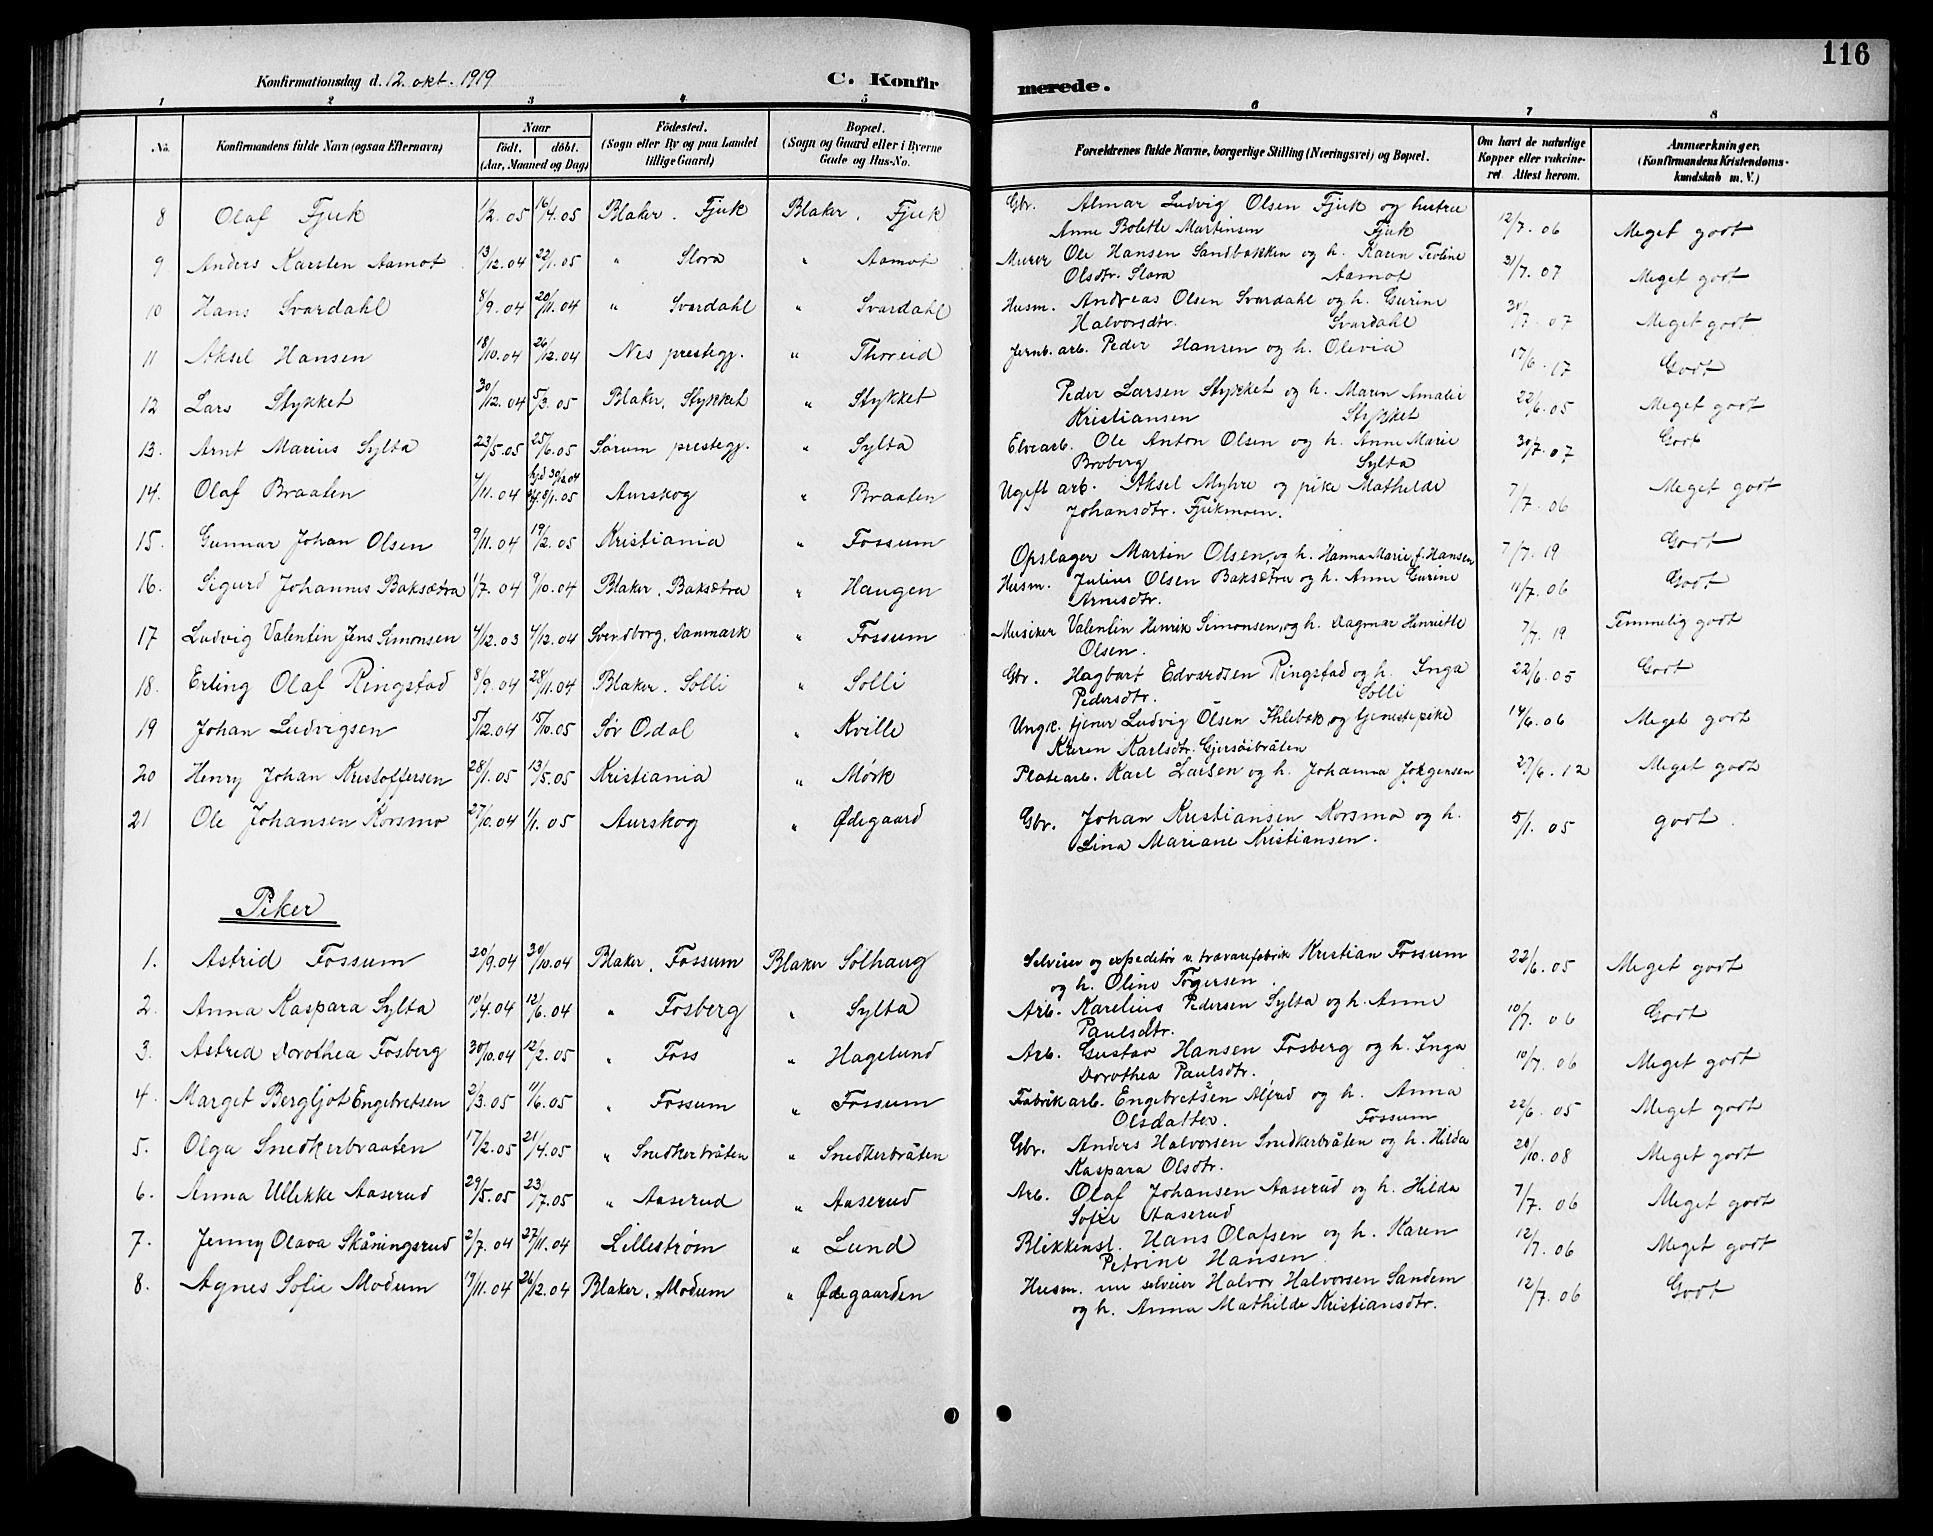 116
Konfirmationsdag d. 12. okt. 1919
C. Konfirmerede.
1 2 3 4 5 6 7 8
No. Konfirmandens fulde Navn (ogsaa Efternavn) Naar født. døbt. (Aar, Maaned og Dag) Födested. (Sogn eller By og paa Landet tillige Gaard) Bopæl. (Sogn og Gaard eller i Byerne Gade og Hus-No. Forældrenes fulde Navne, borgerlige Stilling (Næringsvei) og Bopæl. Om havt de naturlige Kopper eller vakcineret Attest herom. Anmærkninger. (Konfirmandens Kristendomskundskab m. V.)
8 Olaf Fjuk 1/2.05 16/4.05 Blaker. Fjuk Blaker, Fjuk Gbr. Almar Ludvig Olsen Fjuk og hustru 12/7.06 Meget godt
Anne Bolette Martinsen Fjuk
9 Anders Karsten Aamot 13/12.04 22/1.05 " Slora " Aamot Murer Ole Hansen Sandbakken og h. Karen 31/7.07 Meget godt
Olsdtr. Slora Aamot
10 Hans Svardahl 8/9.04 20/11.04 " Svardahl " Svardahl Husm. Andreas Olsen Svardahl og h. Gurine 30/7.07 Meget godt
Halvorsdtr. Svardahl
11 Aksel Hansen 18/10.04 26/12.04 Nes prestegj. " Thoreid Jernb. arb. Peder Hansen og h. Olevia 17/6.17 Godt
12 Lars Stykket 30/12.04 5/3.05 Blaker, Stykket " Stykket Peder Larsen Stykket og h. Maren Amalie 22/6.05 Meget godt
Kristiansen Stykket
13. Arnt Marius Sylta 23/5.05 25/6.05 Sørum prestegj. " Sylta Elvearb. Ole Anton Olsen og h. Anne Marie 30/7.07 Godt
Broberg Sylta
14. Olaf Braaten 4/11.04 hjd 30/12.04 8/1.05 Aurskog " Braaten Ugift arb. Aksel Myhre og pike Mathilde 7/7.06 Meget godt
Johansdtr. Fjukmoen.
15. Gunnar Johan Olsen 9/11.04 19/2.05 Kristiania " Fossum Opslager Martin Olsen, og h. Hanna Marie f. Hansen 7/7.19 Godt
16. Sigurd Johannes Baksætra 1/7.04 9/10.04 Blaker, Baksætra " Haugen Husm. Julius Olsen Baksætra og h. Anne Gurine 11/7.06 Godt
Arnesdtr.
17 Ludvig Valentin Jens Simonsen 4/12.03 4/12.04 Svendborg, Danmark " Fossum Musiker Valentin Henrik Simonsen, og h. Dagmar Henriette 7/7.19 Temmelig godt
Olsen.
18. Erling Olaf Ringstad 8/9.04 28/11.04 Blaker. Solli " Solli Gbr. Hagbart Edvardsen Ringstad og h. Inga 22/6.05 Godt
Pedersdtr. Solli
19 Johan Ludvigsen 5/12.04 15/10.05 Sør Odal " Kville Ungk. tjener Ludvig Olsen og tjenestepike 14/6.06 Meget godt
Karen Karlsdtr. Gjersøibråten
20 Henry Johan Kristoffersen 28/1.05 13/5.05 Kristiania " Mørk Platearb. Karl Larsen og h. Johanna Jørgensen 27/6.12 Meget godt
21 Ole Johansen Korsmo 27/10.04 1/1.05 Aurskog " Ødegaard Gbr. Johan Kristiansen Korsmo og h. 5/1.05 godt.
Lina Mariane Kristiansen.
Piker
1. Astrid Fossum 20/9.04 30/10.04 Blaker, Fossum Blaker Solhaug Selveier og expeditør v. trævarefabrik Kristian Fossum 22/6.05 Meget godt
og h. Oline Togersen.
2. Anna Kaspara Sylta 10/4.04 12/6.04 " Fosberg " Sylta Arb. Karelius Pedersen Sylta og h. Anne 10/7.06 Godt
Paulsdtr.
3. Astrid Dorothea Fosberg 30/10.04 12/2.05 " Foss " Hagelund Arb. Gustav Hansen Fosberg og h. Inga 10/7.06 Meget godt
Dorothea Paulsdtr.
4. Margit Bergljot Engebretsen 2/3.05 11/6.05 " Fossum " Fossum Fabrikarb. Engebretsen Alfred og h. Anna 22/6.05 Meget godt
Olsdatter. Fossum
5. Olga Snedkerbraaten 17/2.05 21/4.05 " Snedkerbråten " Snedkerbråten Gbr. Anders Halvorsen Snedkerbråten og h. Hilda 20/10.08 Meget godt
Kaspara Olsdtr.
6. Anna Ullekke Aaserud 29/5.05 23/7.05 " Aaserud " Aaserud Arb. Olaf Johansen Aaserud og h. Hilda 7/7.06 Meget godt
Sofie Aaserud
7. Jenny Olava Skåningsrud 2/7.04 27/11.04 Lillestrøm " Lund Blikkensl. Hans Olafsen og h. Karen 12/7.06 Meget godt
Petrine Hansen
8. Agnes Sofie Modum 17/11.04 26/12.04 Blaker, Modum " Ødegaarden Husm. nu selveier Halvor Halvorsen Sandem 12/7.06 Godt
og h. Anna Mathilde Kristiansdtr.